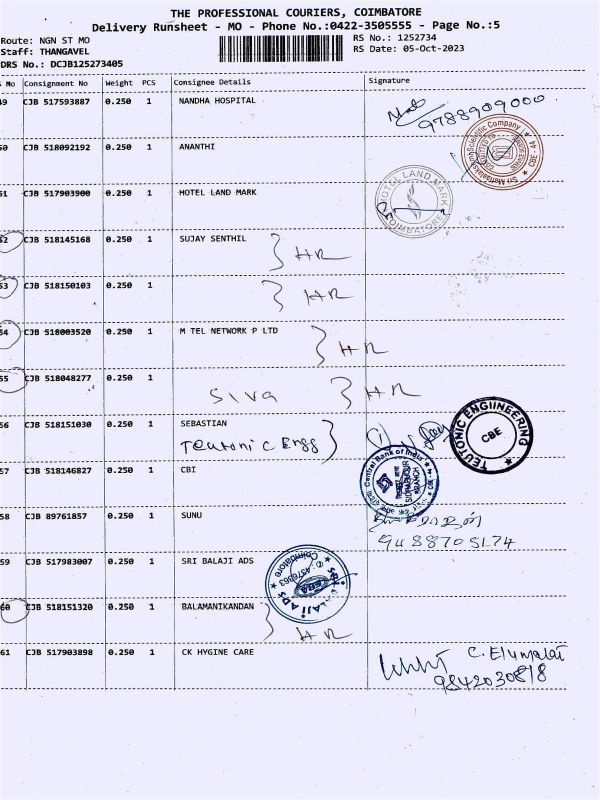 THE PROFESSIONAL COURIERS, COIMBATORE
Delivery Runsheet - MO - Phone No.:0422-3505555 - Page No.:5
Route: NGN ST MO
RS No.: 1252734
Staff: THANGAVEL
RS Date: 05-Oct-2023
DRS No.: DCJB125273405
S No Consignment No Weight PCS Consignee Details Signature
49 CJB 517593887 0.250 1 NANDHA HOSPITAL
9788909000
50 CJB 518092192 0.250 1 ANANTHI
Scientific Company
CBE - 44
51 CJB 517903900 0.250 1 HOTEL LAND MARK
HOTEL LAND MARK
COIMBATORE
52 CJB 518145168 0.250 1 SUJAY SENTHIL
HR
53 CJB 518150103 0.250 1
HR
54 CJB 518003520 0.250 1 M TEL NETWORK P LTD
HR
55 CJB 518048277 0.250 1
Siva HR
56 CJB 518151030 0.250 1 SEBASTIAN
Teutonic Engg
TEUTONIC ENGIINEERING
CBE
57 CJB 518146827 0.250 1 CBI
Central Bank of India
BRANCH
58 CJB 89761857 0.250 1 SUNU
9488705174
59 CJB 517983007 0.250 1 SRI BALAJI ADS
SRI BALAJI ADS
Coimbatore
60 CJB 518151320 0.250 1 BALAMANIKANDAN
HR
61 CJB 517903898 0.250 1 CK HYGINE CARE
C. Elumalai
9842030818